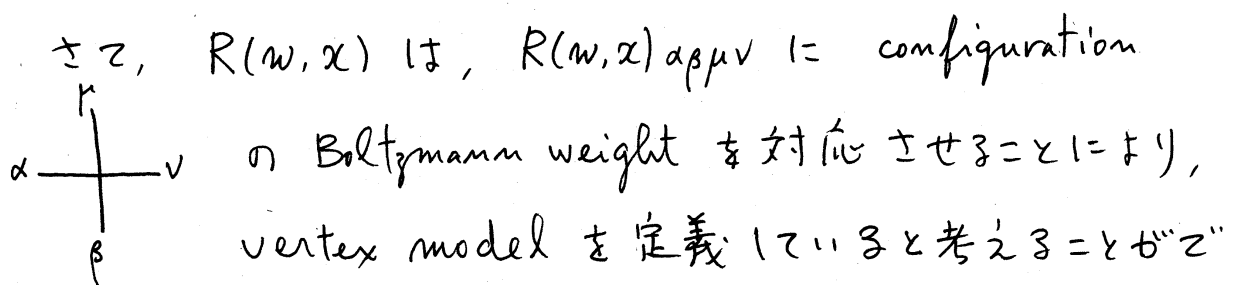 さて, R(w, x) は, R(w,x)αβμν に configuration
μ
α ν の Boltzmann weight を対応させることにより,
β vertex model を定義していると考えることがで